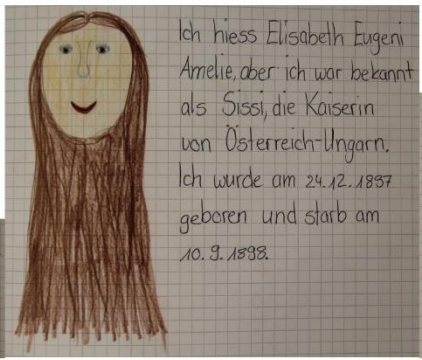 Ich hiess Elisabeth Eugeni
Amelie, aber ich war bekannt
als Sissi, die Kaiserin
von Österreich-Ungarn.
Ich wurde am 24.12.1837
geboren und starb am
10.9.1898.